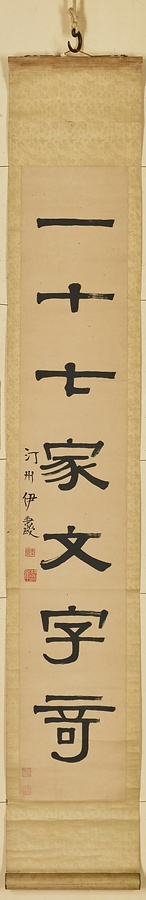 一十七家文字奇
汀州伊秉綬